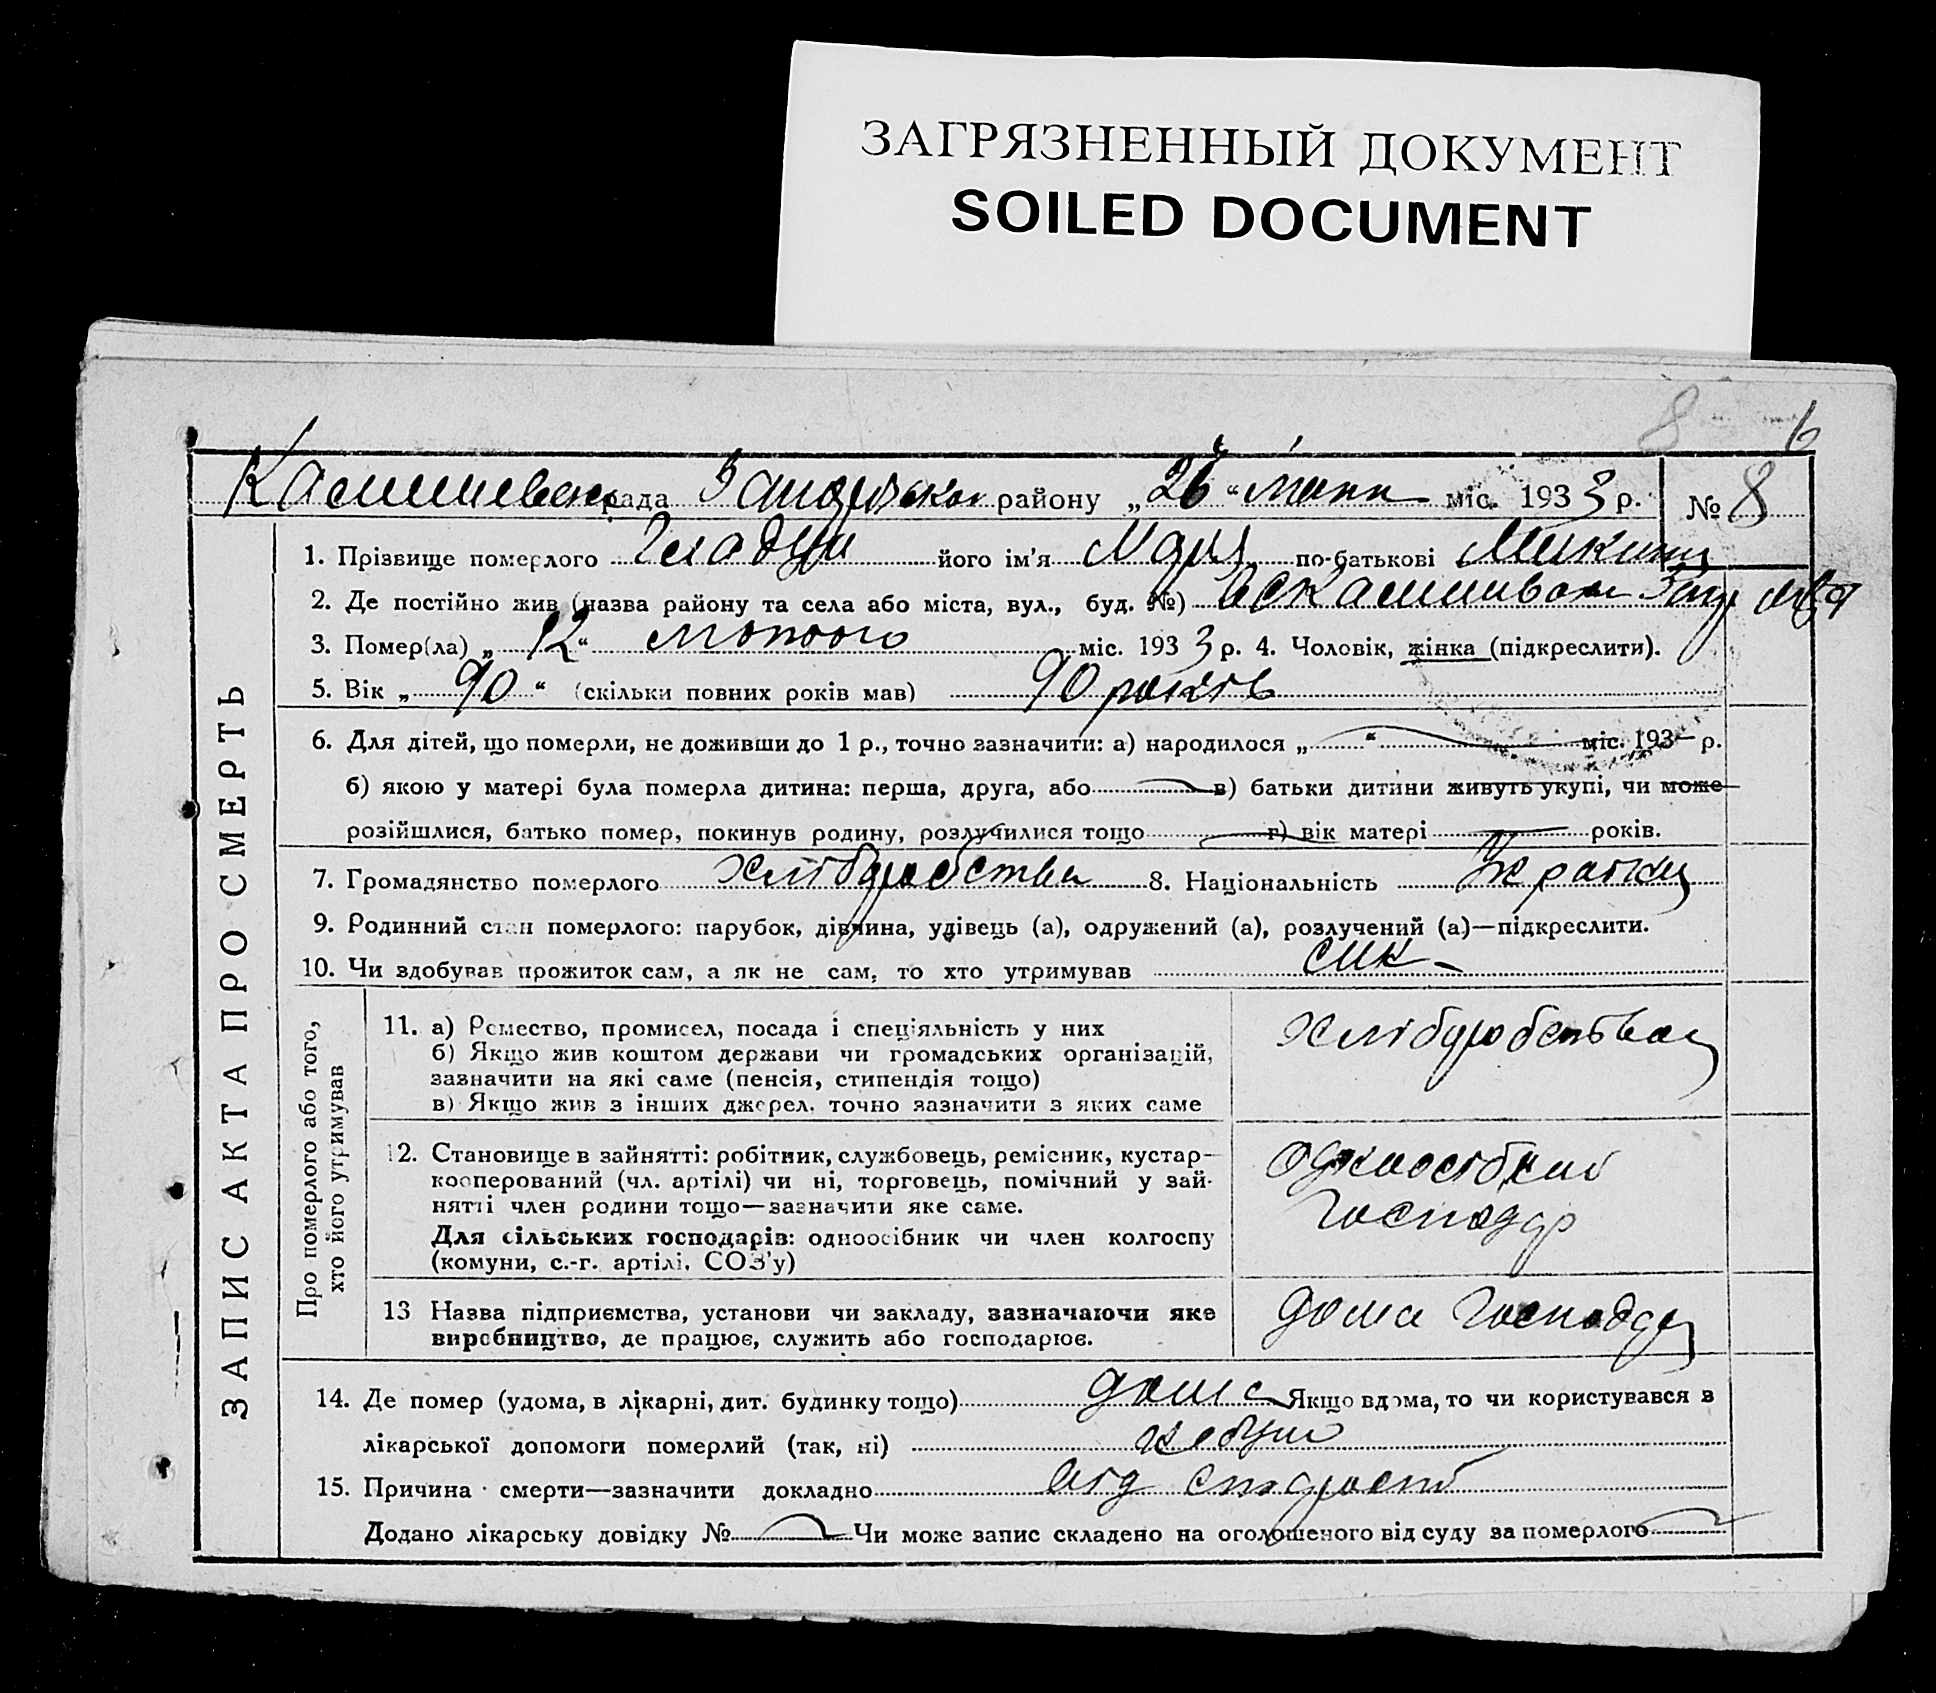 ЗАГРЯЗНЕННЫЙ ДОКУМЕНТ
SOILED DOCUMENT
8 6
рада району „26“ міс. 1933 р. № 8
ЗАПИС АКТА ПРО СМЕРТЬ
1. Прізвище померлого його ім'я по-батькові
2. Де постійно жив (назва району та села або міста, вул., буд. №)
3. Помер(ла) „12“ лютого міс. 1933 р. 4. Чоловік, жінка (підкреслити).
5. Вік „90“ (скільки повних років мав) 90 років
6. Для дітей, що померли, не доживши до 1 р., точно зазначити: а) народилося „ “ міс. 193 р.
б) якою у матері була померла дитина: перша, друга, або в) батьки дитини живуть укупі, чи може
розійшлися, батько помер, покинув родину, розлучилися тощо г) вік матері років.
7. Громадянство померлого хліборобство 8. Національність
9. Родинний стан померлого: парубок, дівчина, удівець (а), одружений (а), розлучений (а)—підкреслити.
10. Чи здобував прожиток сам, а як не сам, то хто утримував син
Про померлого або того,
хто його утримував
11. а) Ремество, промисел, посада і спеціяльність у них
б) Якщо жив коштом держави чи громадських організацій,
зазначити на які саме (пенсія, стипендія тощо)
в) Якщо жив з інших джерел, точно зазначити з яких саме
12. Становище в зайнятті: робітник, службовець, ремісник, кустар-
кооперований (чл. артілі) чи ні, торговець, помічний у зай-
нятті член родини тощо—зазначити яке саме.
Для сільських господарів: одноосібник чи член колгоспу
(комуни, с.-г. артілі, СОЗ'у)
одноосібний
господар
13 Назва підприємства, установи чи закладу, зазначаючи яке
виробництво, де працює, служить або господарює.
дома
14. Де помер (удома, в лікарні, дит. будинку тощо) дома Якщо вдома, то чи користувався з
лікарської допомоги померлий (так, ні)
15. Причина смерти—зазначити докладно від старости
Додано лікарську довідку № Чи може запис складено на оголошеного від суду за померлого